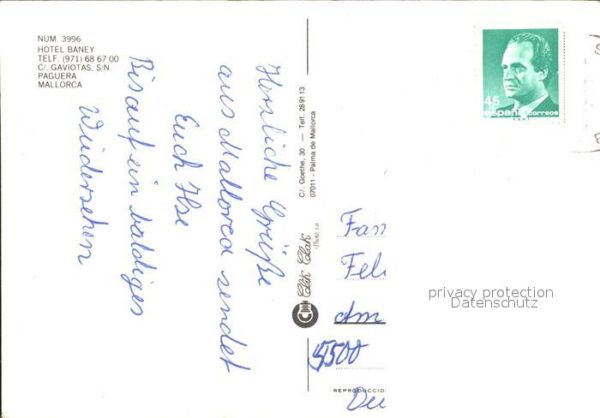 NUM. 3996
HOTEL BANEY
TELF. (971) 68 67 00
C/. GAVIOTAS, S/N
PAGUERA
MALLORCA
Herzliche Grüße
aus Mallorca sendet
Euch Ilse
Bis auf ein baldiges
Wiedersehen
C/. Goethe, 30 — Telf. 28 91 13
07011 - Palma de Mallorca
Clik Clak
45
españa correos
Fam
Fel
Am
privacy protection
Datenschutz
4500
REPRODUCCIO
Deu